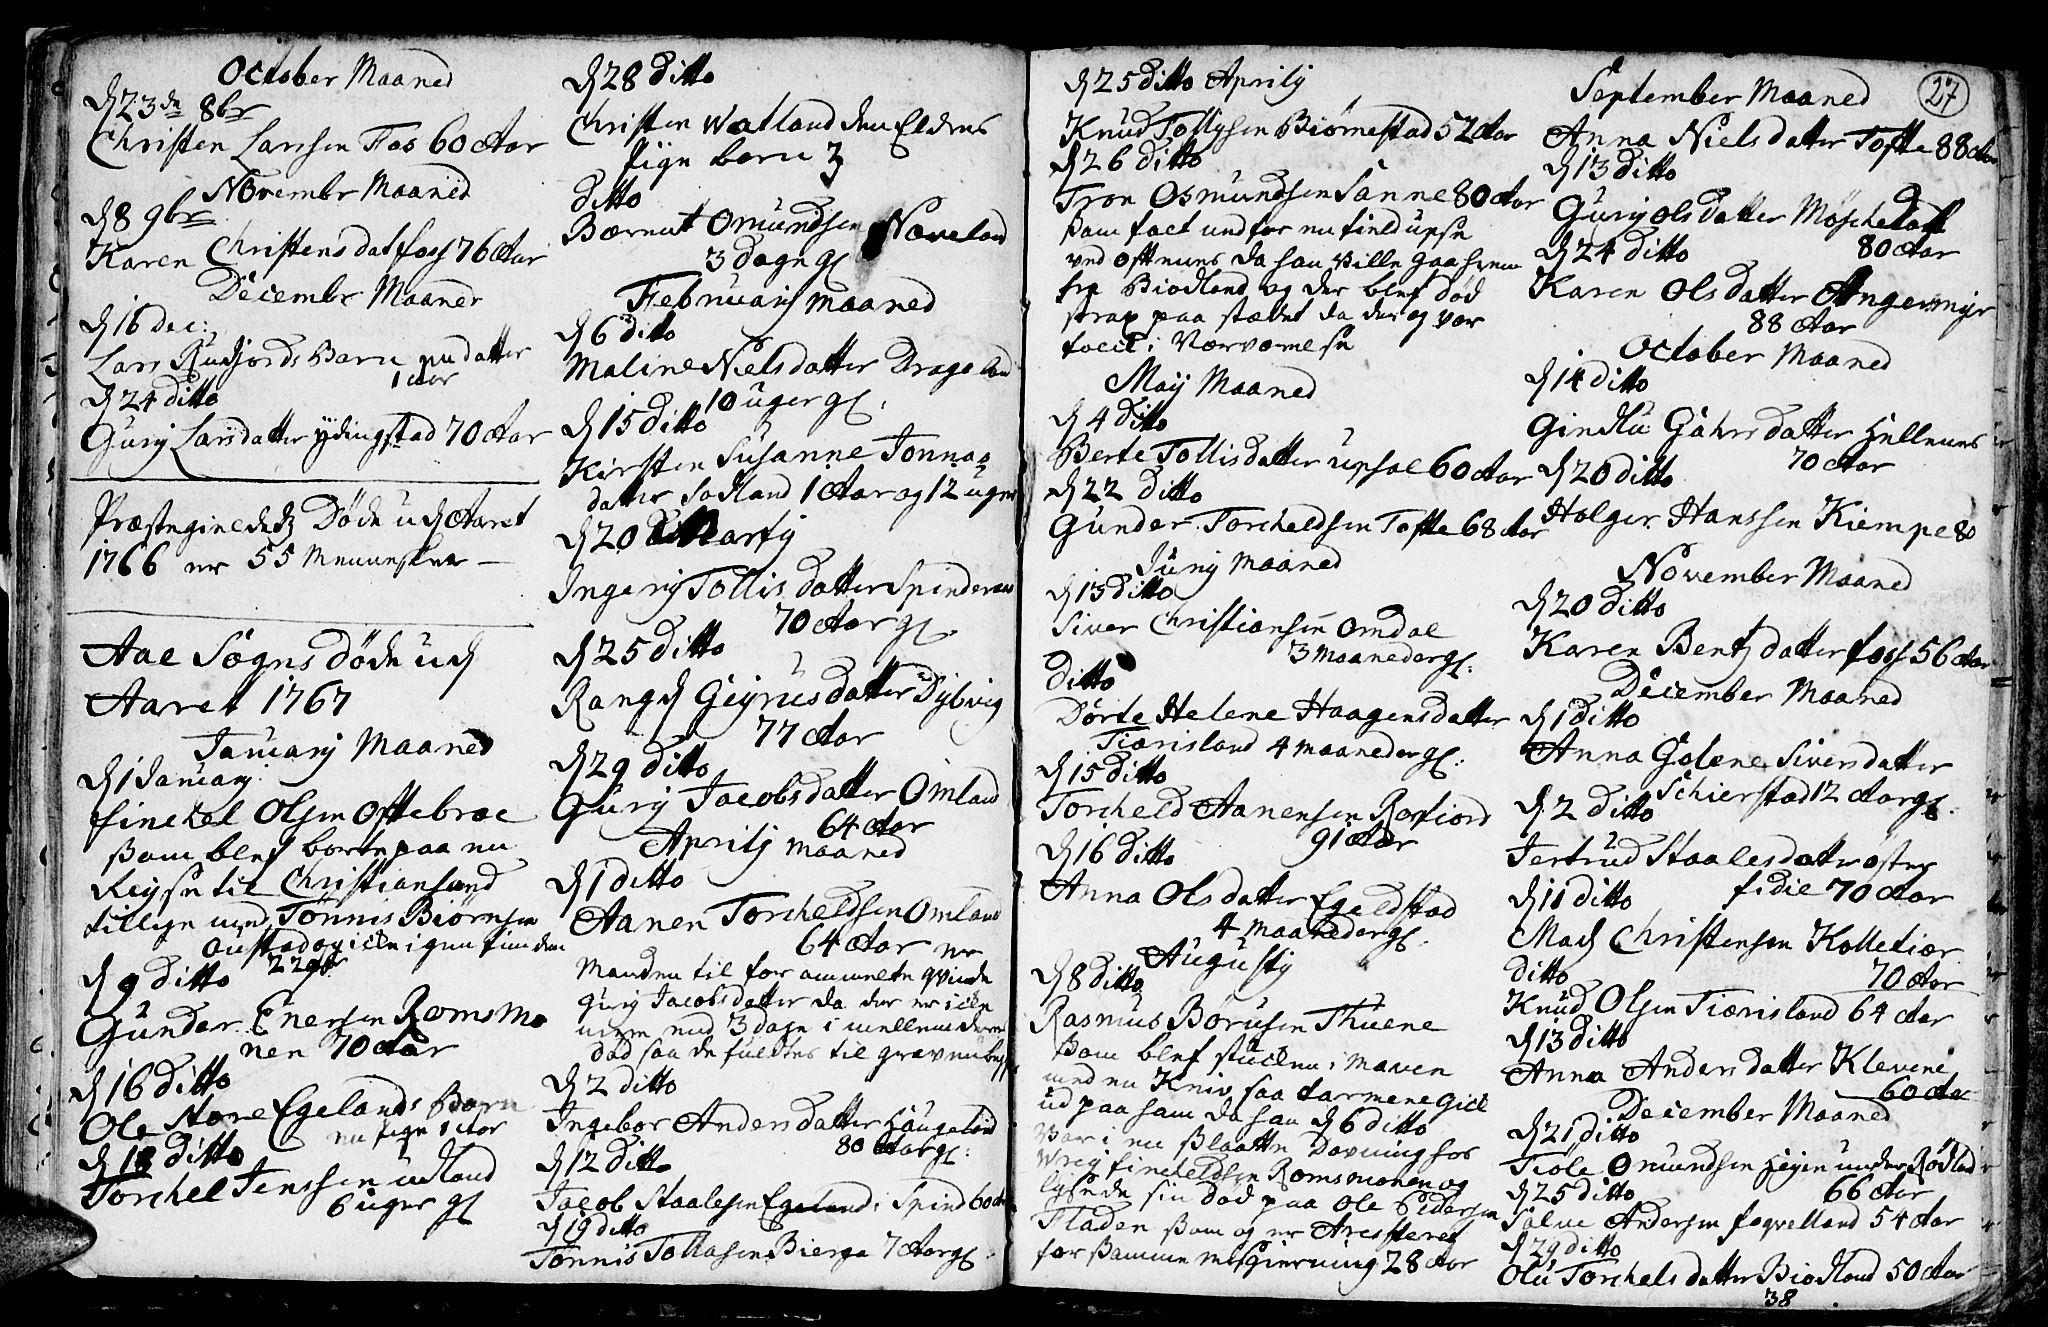 October Maaned
d 23de 8br
Christen Larssen Fos 60 Aar
Novembr Maaned
d 8 9br
Karen Christensdat foss 76 Aar
Decembr Maaned
d 16 dec:
Lars Rudfjords Barn en datter
1 Aar
d 24 ditto
Gurij Larsdatter ydingstad 70 Aar
Præstegieldetz Døde ud Aaret
1766 er 55 Mennesker —
Aae Sogns døde ud
Aaret 1767
Januarij Maaned
d 1 Januarij
finckel Olsen Oftebroe
Som blef borte paa en
Reyse til Christiansand
tillige med Tønnis Biørnsen
Øustad og icke igien funden
22 9br
d 9 ditto
Gunder Enersen Romsmo
nen 70 Aar
d 16 ditto
Ole Store Egelands Barn
en pige 1 Aar
d 18 ditto
Torchel Jenssen udland
6 uger gl
d 28 ditto
Christen Watland den Eldres
pige barn 3
ditto
Bærent Omundsen Næveland
3 dage gl
Februarij Maaned
d 6 dito
Maline Nielsdatter Drageland
10 uger gl.
d 15 ditto
Kirsten Susanne Tonnas
datter Sodland 1 Aar og 12 uger
d 20 Martij
Ingerij Tollisdatter Spinderen
70 Aar gl.
d 25 ditto
Rangd Geyrusdatter Dybvig
77 Aar
d 29 ditto
Gurij Jacobsdatter Omland
64 Aar
Aprilij Maaned
d 1 ditto
Aanen Torcheldsen Omland
64 Aar er
Manden til for ommelte qvinde
Gurij Jacobsdatter da der er icke
mere end 3 dage i mellem deres
død saa de fuldtes til graven
d 2 ditto
Ingebor Andersdatter Haugeland
80 Aar gl:
d 12 Ditto
Jacob Staalesen Egeland i Spind 60 Aar
d 19 ditto
Tønnis Tollasen Bierga 7 Aar gl.
d 25 ditto Aprilij
Knud Tollysen Biørnestad 52 Aar
d 26 ditto
Tron Osmundsen Sanne 80 Aar
Som falt ned for en field upse
ved Oftenes da han Ville gaa hiem
fra Biodland og der blef død
strax paa stædet da der og var
foed i Værvarnese
Maij Maaned
d 4 ditto
Berte Tollisdatter upsal 60 Aar
d 22 ditto
Gunder Torcheldsen Tofte 68 Aar
Junij Maaned
d 13 ditto
Siver Christiansen Omdal
3 Maaneder gl:
ditto
Dorte Helene Haagensdatter
Tiørisland 4 maaneder gl:
d 15 ditto
Torcheld Aanensen Rosfiord
91 Aar
d 16 ditto
Anna Olsdatter Egeldstad
4 Maaneder gl.
Augustij
d 8 ditto
Rasmus Børusen Thuene
Som blef stucken i maven
med en Kniv saa tarmene gick
ud paa ham da han d 6 ditto
Var i en Slaatte Dovning hos
Wrej finckeldsen Romsmonen og
lysede sin død paa Ole Pedersen
Fladen som og er Aresteret
for Samme misgierning 28 Aar
27
September Maaned
Anna Nielsdatter Tofte 88 Aar
d 13 ditto
Gurij Olsdatter Møscheland
80 Aar
d 24 ditto
Karen Olsdatter Angermyr
88 Aar
October Maaned
d 14 ditto
Gindlu Gahrsdatter Hellenes
70 Aar
d 20 ditto
Holger Hanssen Kiempe 80
November Maaned
d 20 ditto
Karen Bentzdatter foss 56 Aar
December Maaned
d 1 ditto
Anna Golene Siversdatter
Schierstad 12 Aar gl.
d 2 ditto
Jertrud Staalesdatter øster
fidie 70 Aar
d 11 ditto
Mads Christensen Kolletiør
70 Aar
ditto
Knud Olsen Tiørisland 64 Aar
d 13 ditto
Anna Andersdatter Klevene
60 Aar
December Maaned
d 21 ditto
Tiole Omundsen Heyen under Rødland
66 Aar
d 25 ditto
Salve Andersen fogvelland 54 Aar
d 29 ditto
Olu Torchelsdatter Biodland 50 Aar
38